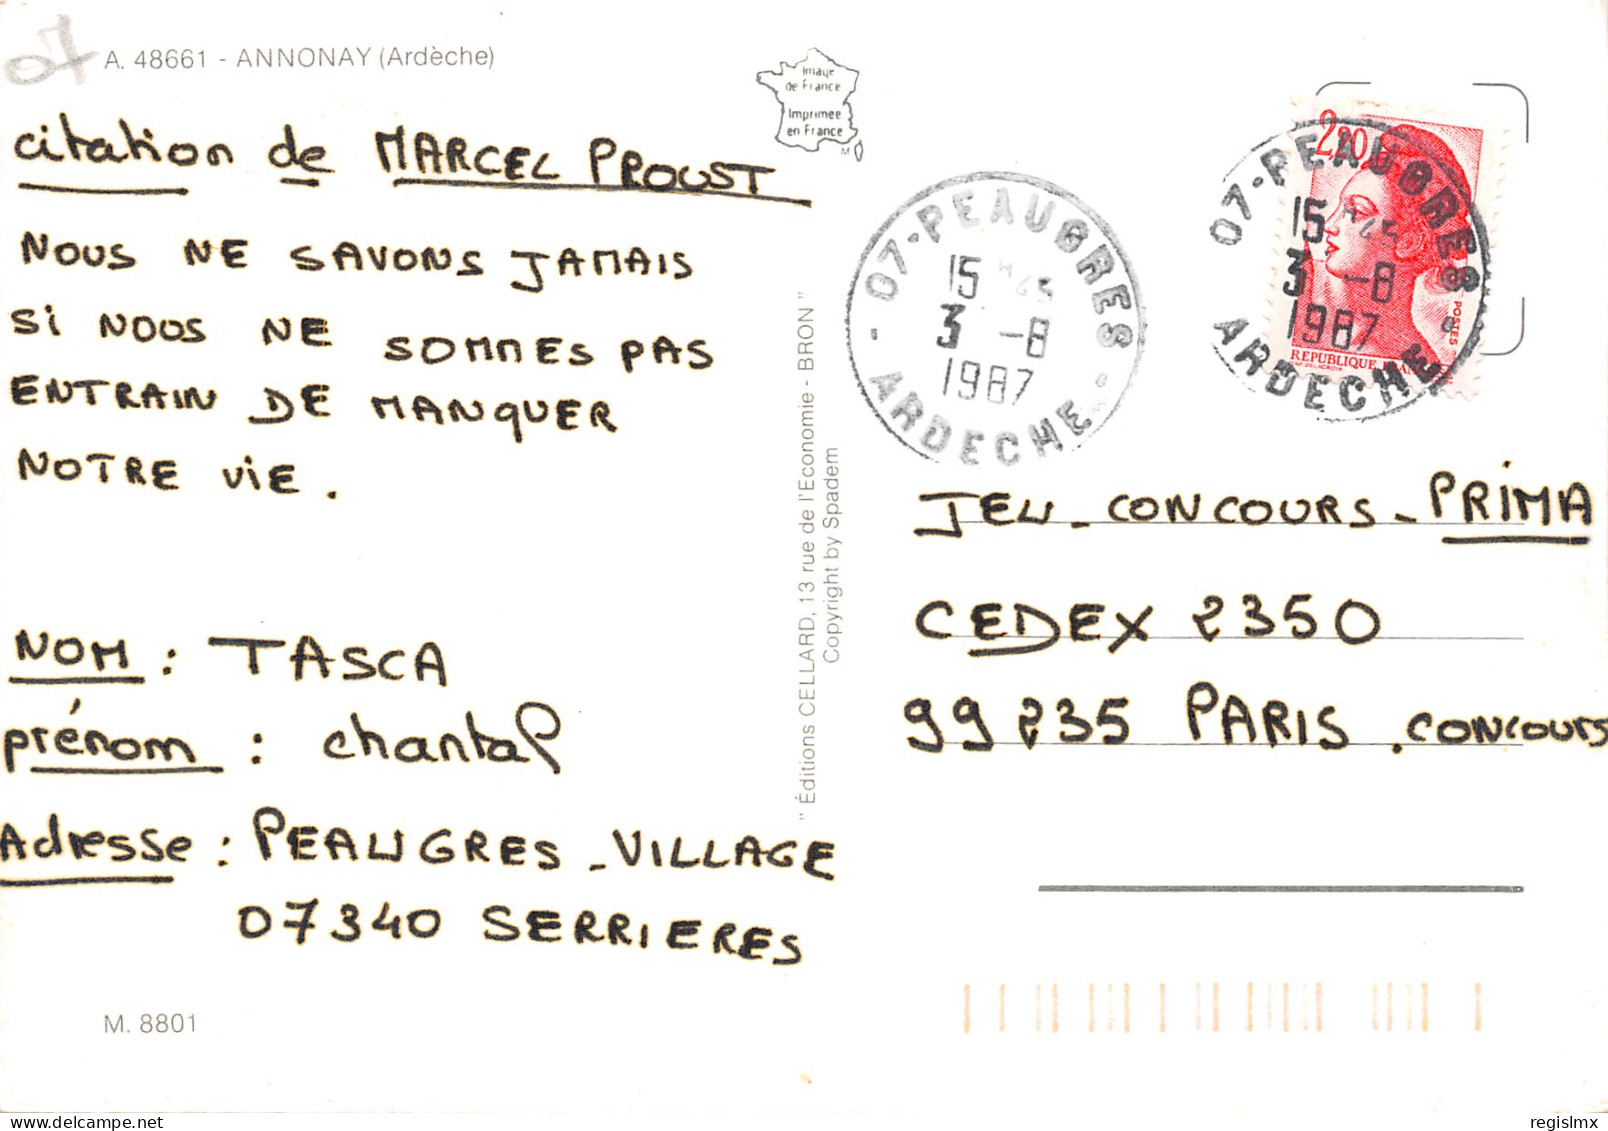 07
A. 48661 - ANNONAY (Ardèche)
Image
de France
Imprimée
en France
M
citation de MARCEL PROUST
NOUS NE SAVONS JAMAIS
Si NOUS NE SOMMES PAS
ENTRAIN DE MANQUER
NOTRE ViE.
NOM : TASCA
prénom : chantal
Adresse : PEAUGRES - VILLAGE
07340 SERRIERES
M. 8801
" Éditions CELLARD, 13 rue de l'Economie - BRON "
Copyright by Spadem
07-PEAUGRES
15 H45
3 -8
1987
ARDECHE
2,20
POSTES
REPUBLIQUE FRANÇAISE
07-PEAUGRES
15 H45
3 -8
1987
ARDECHE
JEU - CONCOURS - PRIMA
CEDEX 2350
99235 PARIS .CONCOURS
delcampe.net
regislmx